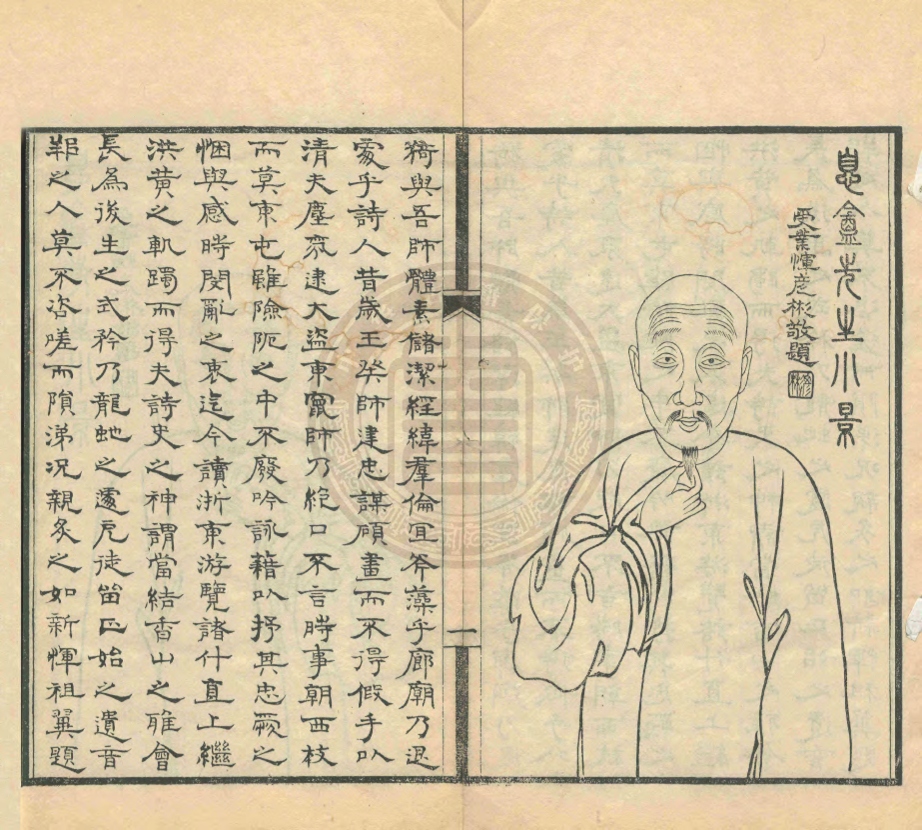 息盦先生小景
受業惲彥彬敬題
猗與吾師體素儲潔經緯羣倫宜斧藻乎廊廟乃退
乎詩人昔歲壬癸師建忠謀碩畫而不得假手以
清夫塵氛逮大盜東竄師乃絕口不言時事朝西枝
而莫東屯雖險阨之中不廢吟詠藉以抒其忠厥之
悃與感時閔亂之衷迄今讀浙東游覽諸什直上繼
洪黃之軌躅而得夫詩史之神謂當結香山之雅會
長為後生之式矜乃龍虵之遽厄徒留正始之遺音
邦之人莫不咨嗟而隕涕況親炙之如新惲祖翼題